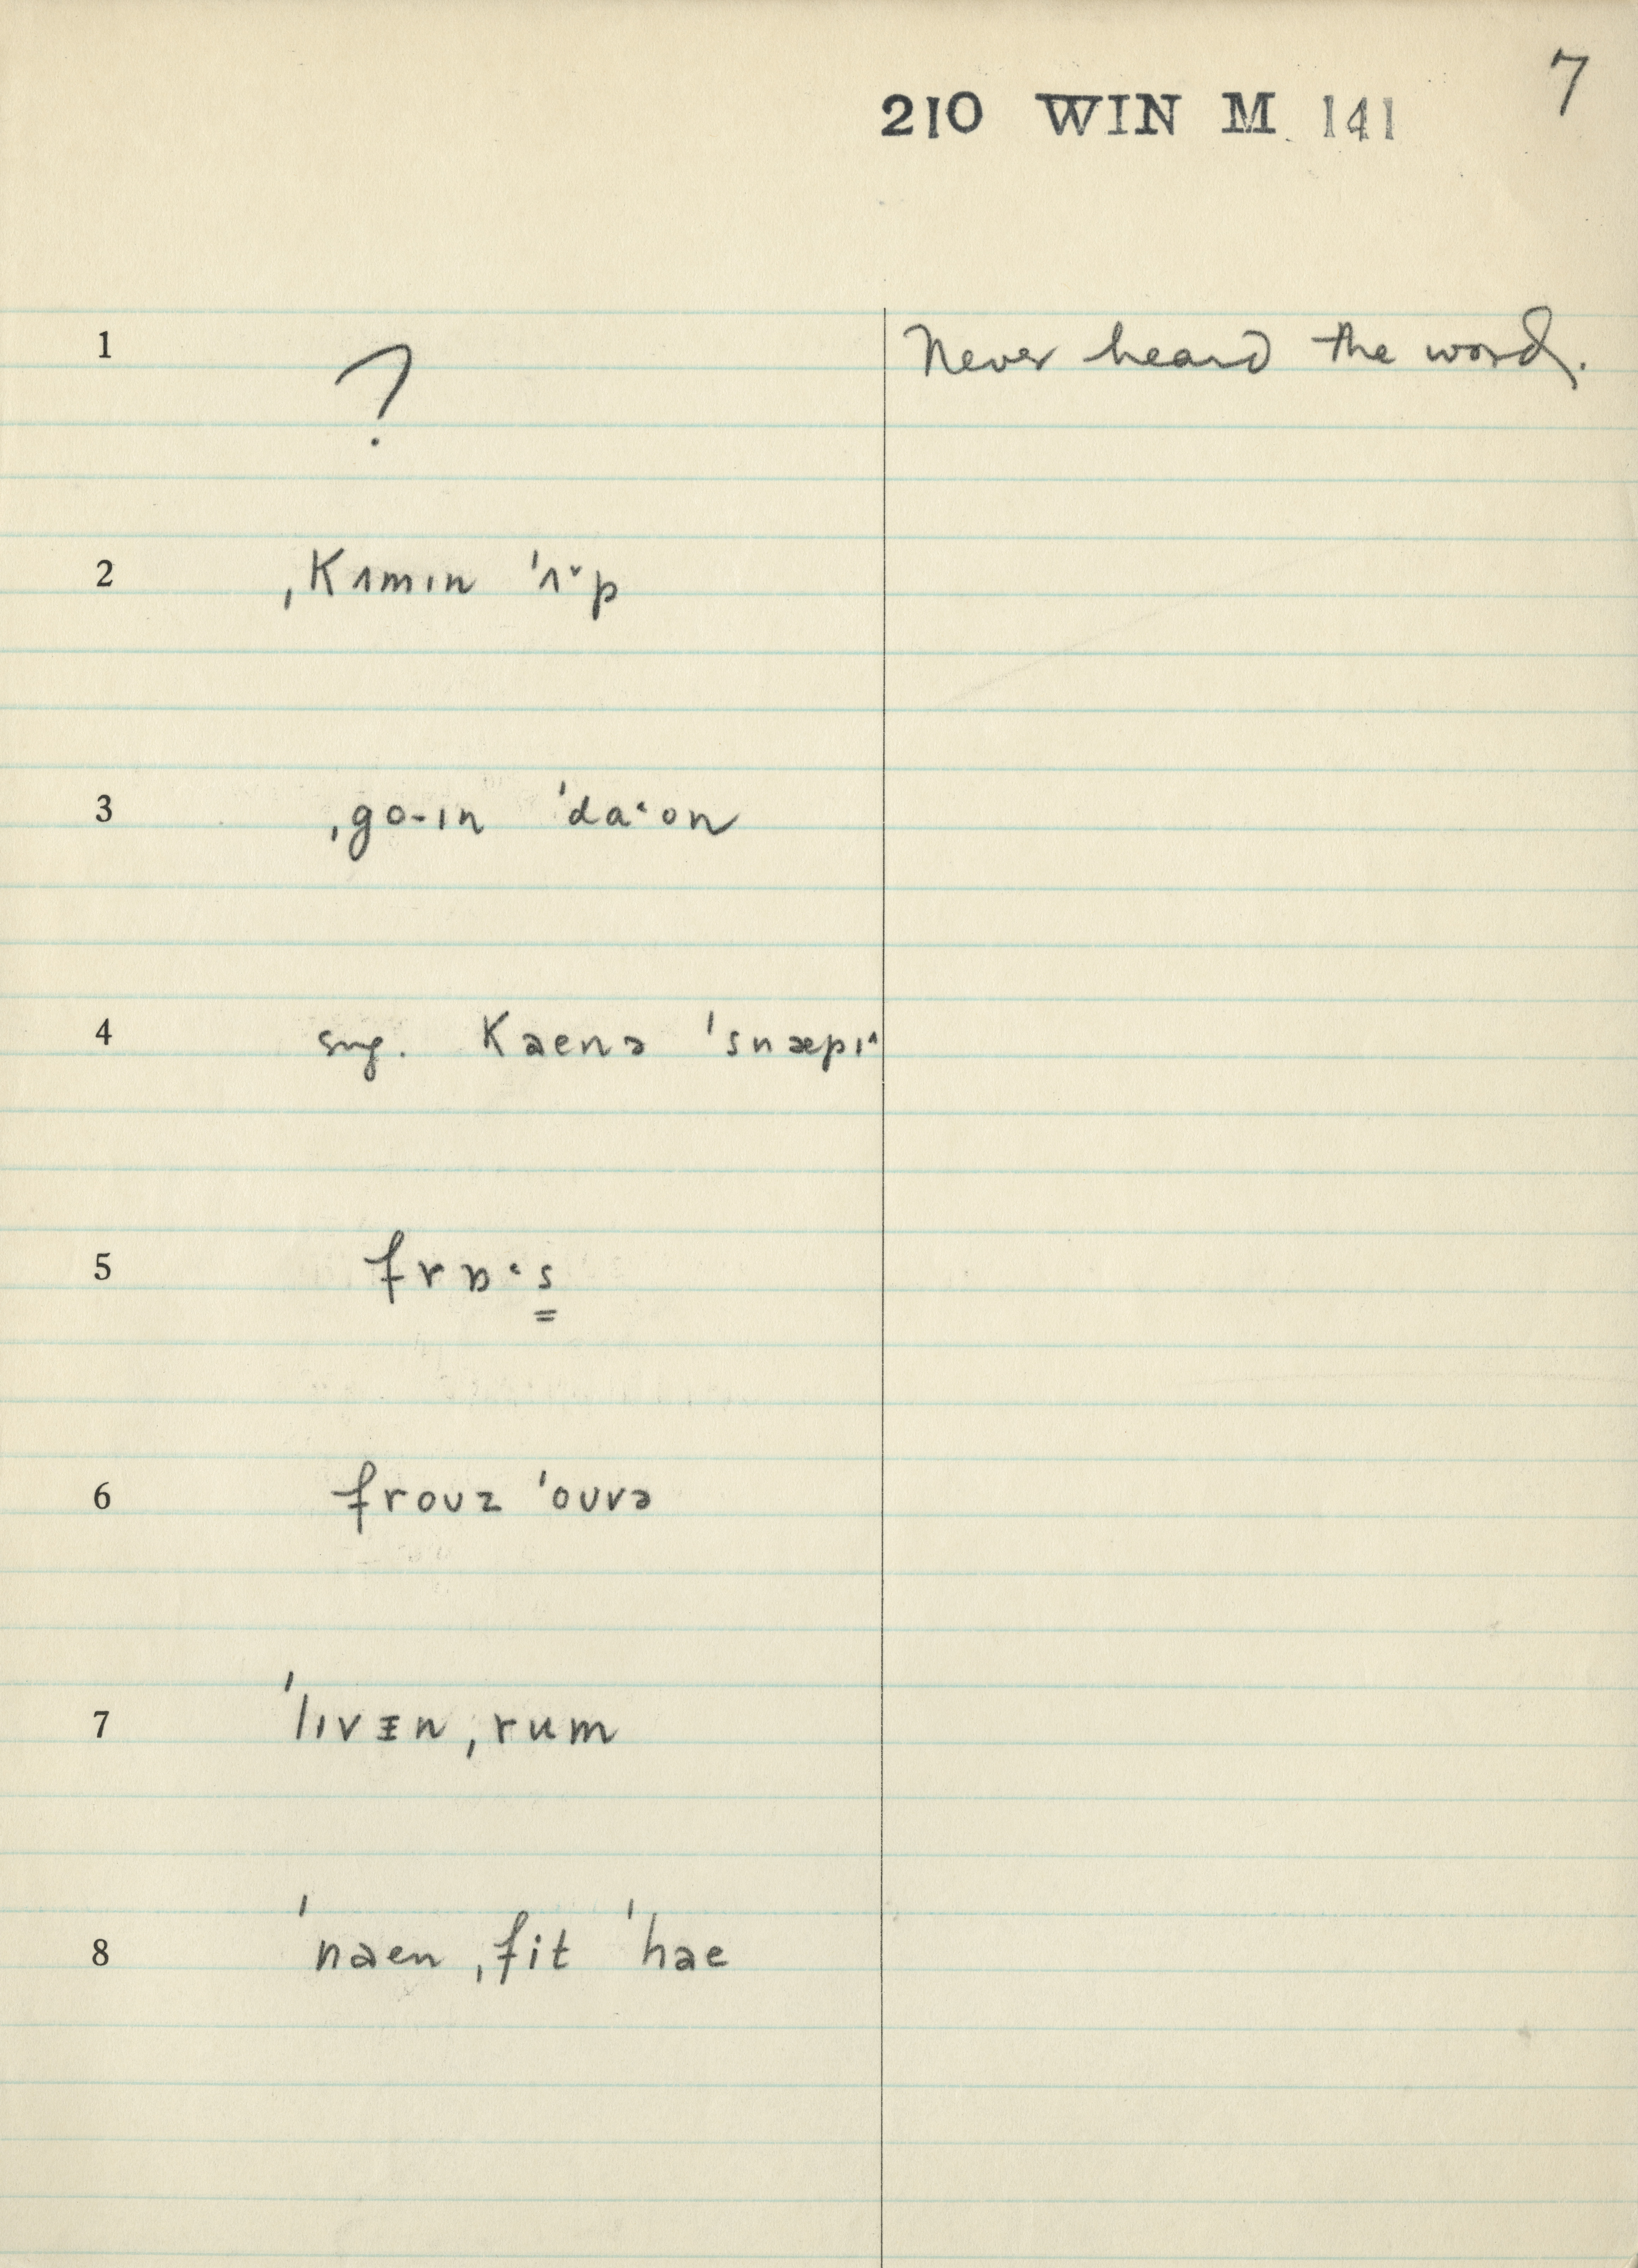 7
210 WIN M 141
1 ? Never heard the word.
2 ˌkʌmɪn ˈʌˑp
3 ˌgo-ɪn ˈdaˑon
4 sng. kaenə ˈsnæpɪˑ
5 frɒˑs
6 froʊz ˈoʊvə
7 ˈlɪvɪn ˌrum
8 ˈnaen ˌfit ˈhae